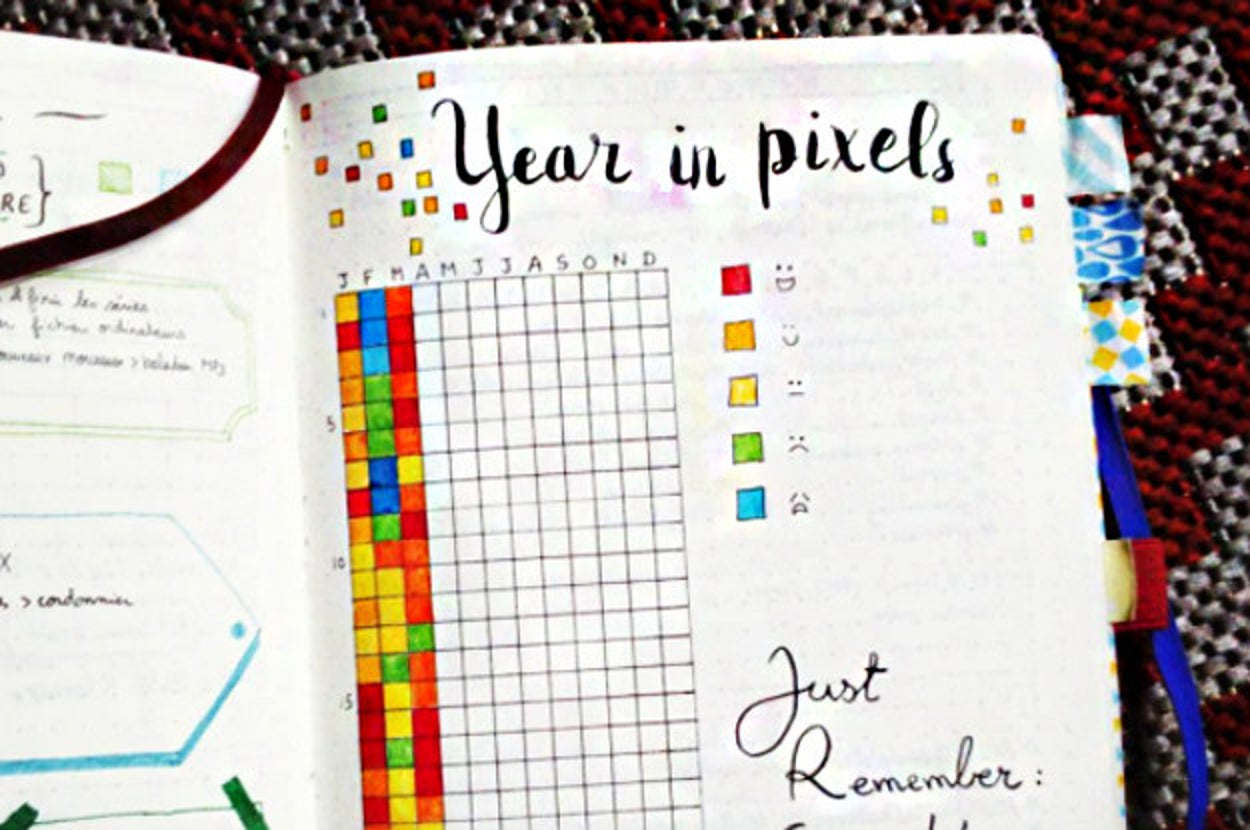 RE}
à finir les séries
fichiers ordinateurs
morceaux > baladeur MP3
X
> cordonnier
Year in pixels
J F M A M J J A S O N D
1
5
10
15
Just
Remember: